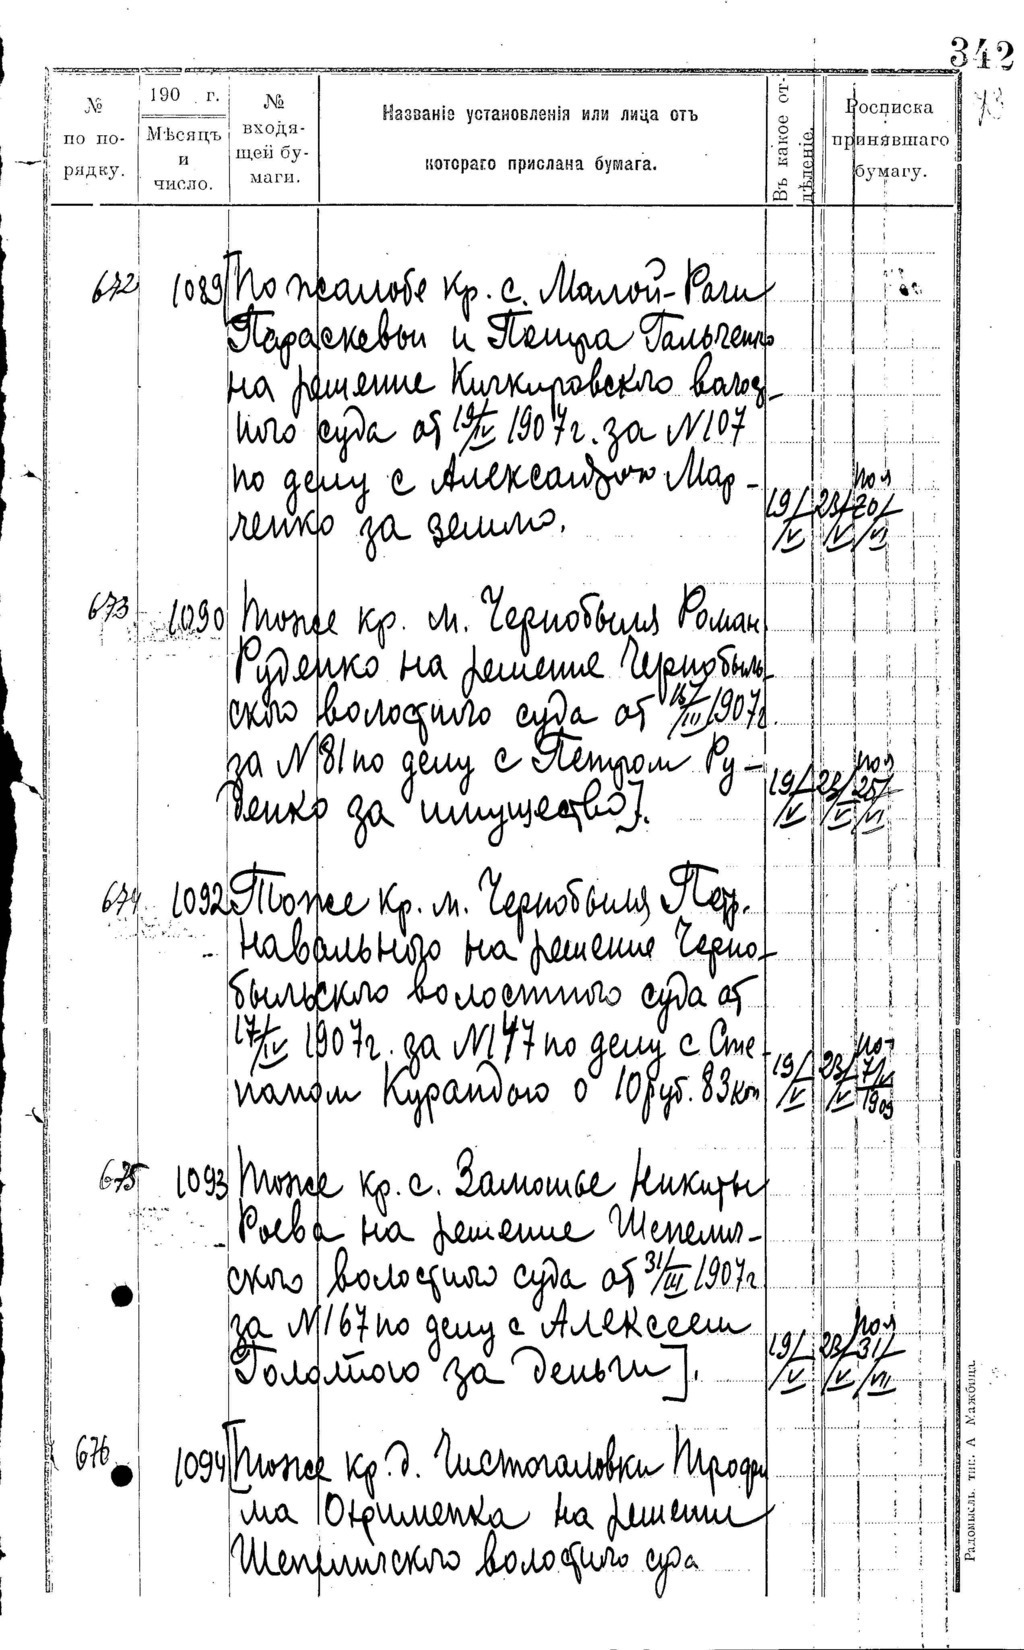 342
73
№ по порядку.
190 г.
Мѣсяцъ и число.
№ входящей бумаги.
Названіе установленія или лица отъ
котораго прислана бумага.
Въ какое отдѣленіе.
Росписка принявшаго бумагу.
672 1089 [По жалобе кр. с. Малой-Раги
Параскевы и Петра Гальченко
на решение волост-
ного суда от 19/IV 1907 г. за N 107
по делу с Александрою Мар-
ченко за землю.
19/V 23/V пол 20/VI
673 1090 Тоже кр. м. Чернобыля Роман
Руденко на решение Чернобыль-
ского волостного суда от /III 1907 г.
за N 81 по делу с Петром Ру-
денко за имущество].
19/V 23/V пол 25/VI
674 1092 Тоже кр. м. Чернобыля Петр.
Навального на решение Черно-
быльского волостного суда от
17/IV 1907 г. за N 147 по делу с Сте-
паном Курандою о 10 руб. 83 коп
19/V 23/V 1909
675 1093 Тоже кр. с. Замошье Никиты
Роева на решение Шепелич-
ского волостного суда от 31/III 1907 г
за N 167 по делу с Алексеем
Голотою за деньги].
19/V 23/V пол 31/VII
676 1094 [Тоже кр. д. Чистогаловки Трофи
ма на решение
Шепеличского волостного суда
Радомысль. тип. А Мажбица.